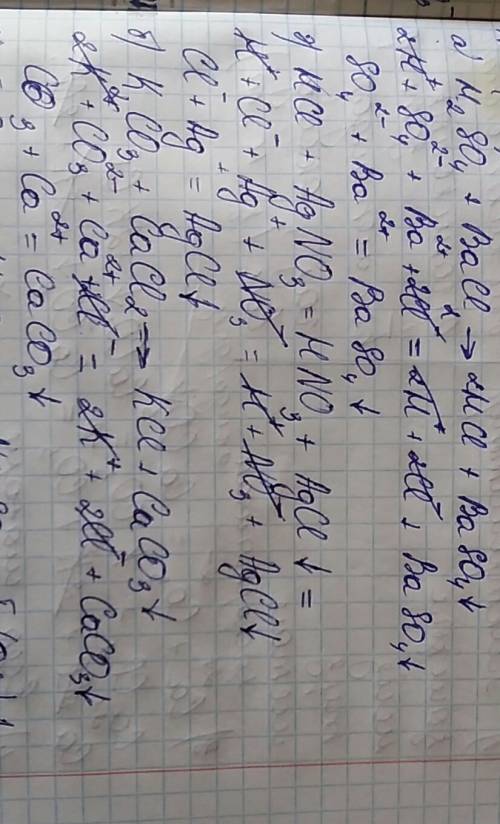 а) H₂SO₄ + BaCl₂ → 2HCl + BaSO₄↓
2H⁺ + SO₄²⁻ + Ba²⁺ + 2Cl⁻ = 2H⁺ + 2Cl⁻ + BaSO₄↓
SO₄²⁻ + Ba²⁺ = BaSO₄↓
д) HCl + AgNO₃ = HNO₃ + AgCl↓ =
H⁺ + Cl⁻ + Ag⁺ + NO₃⁻ = H⁺ + NO₃⁻ + AgCl↓
Cl⁻ + Ag⁺ = AgCl↓
б) K₂CO₃ + CaCl₂ → KCl + CaCO₃↓
2K⁺ + CO₃²⁻ + Ca²⁺ + 2Cl⁻ = 2K⁺ + 2Cl⁻ + CaCO₃↓
CO₃ + Ca²⁺ = CaCO₃↓